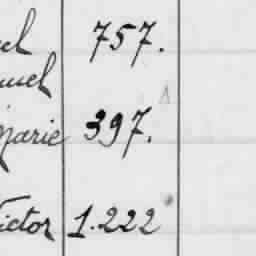 757.
uel
Marie 397.
Victor 1.222